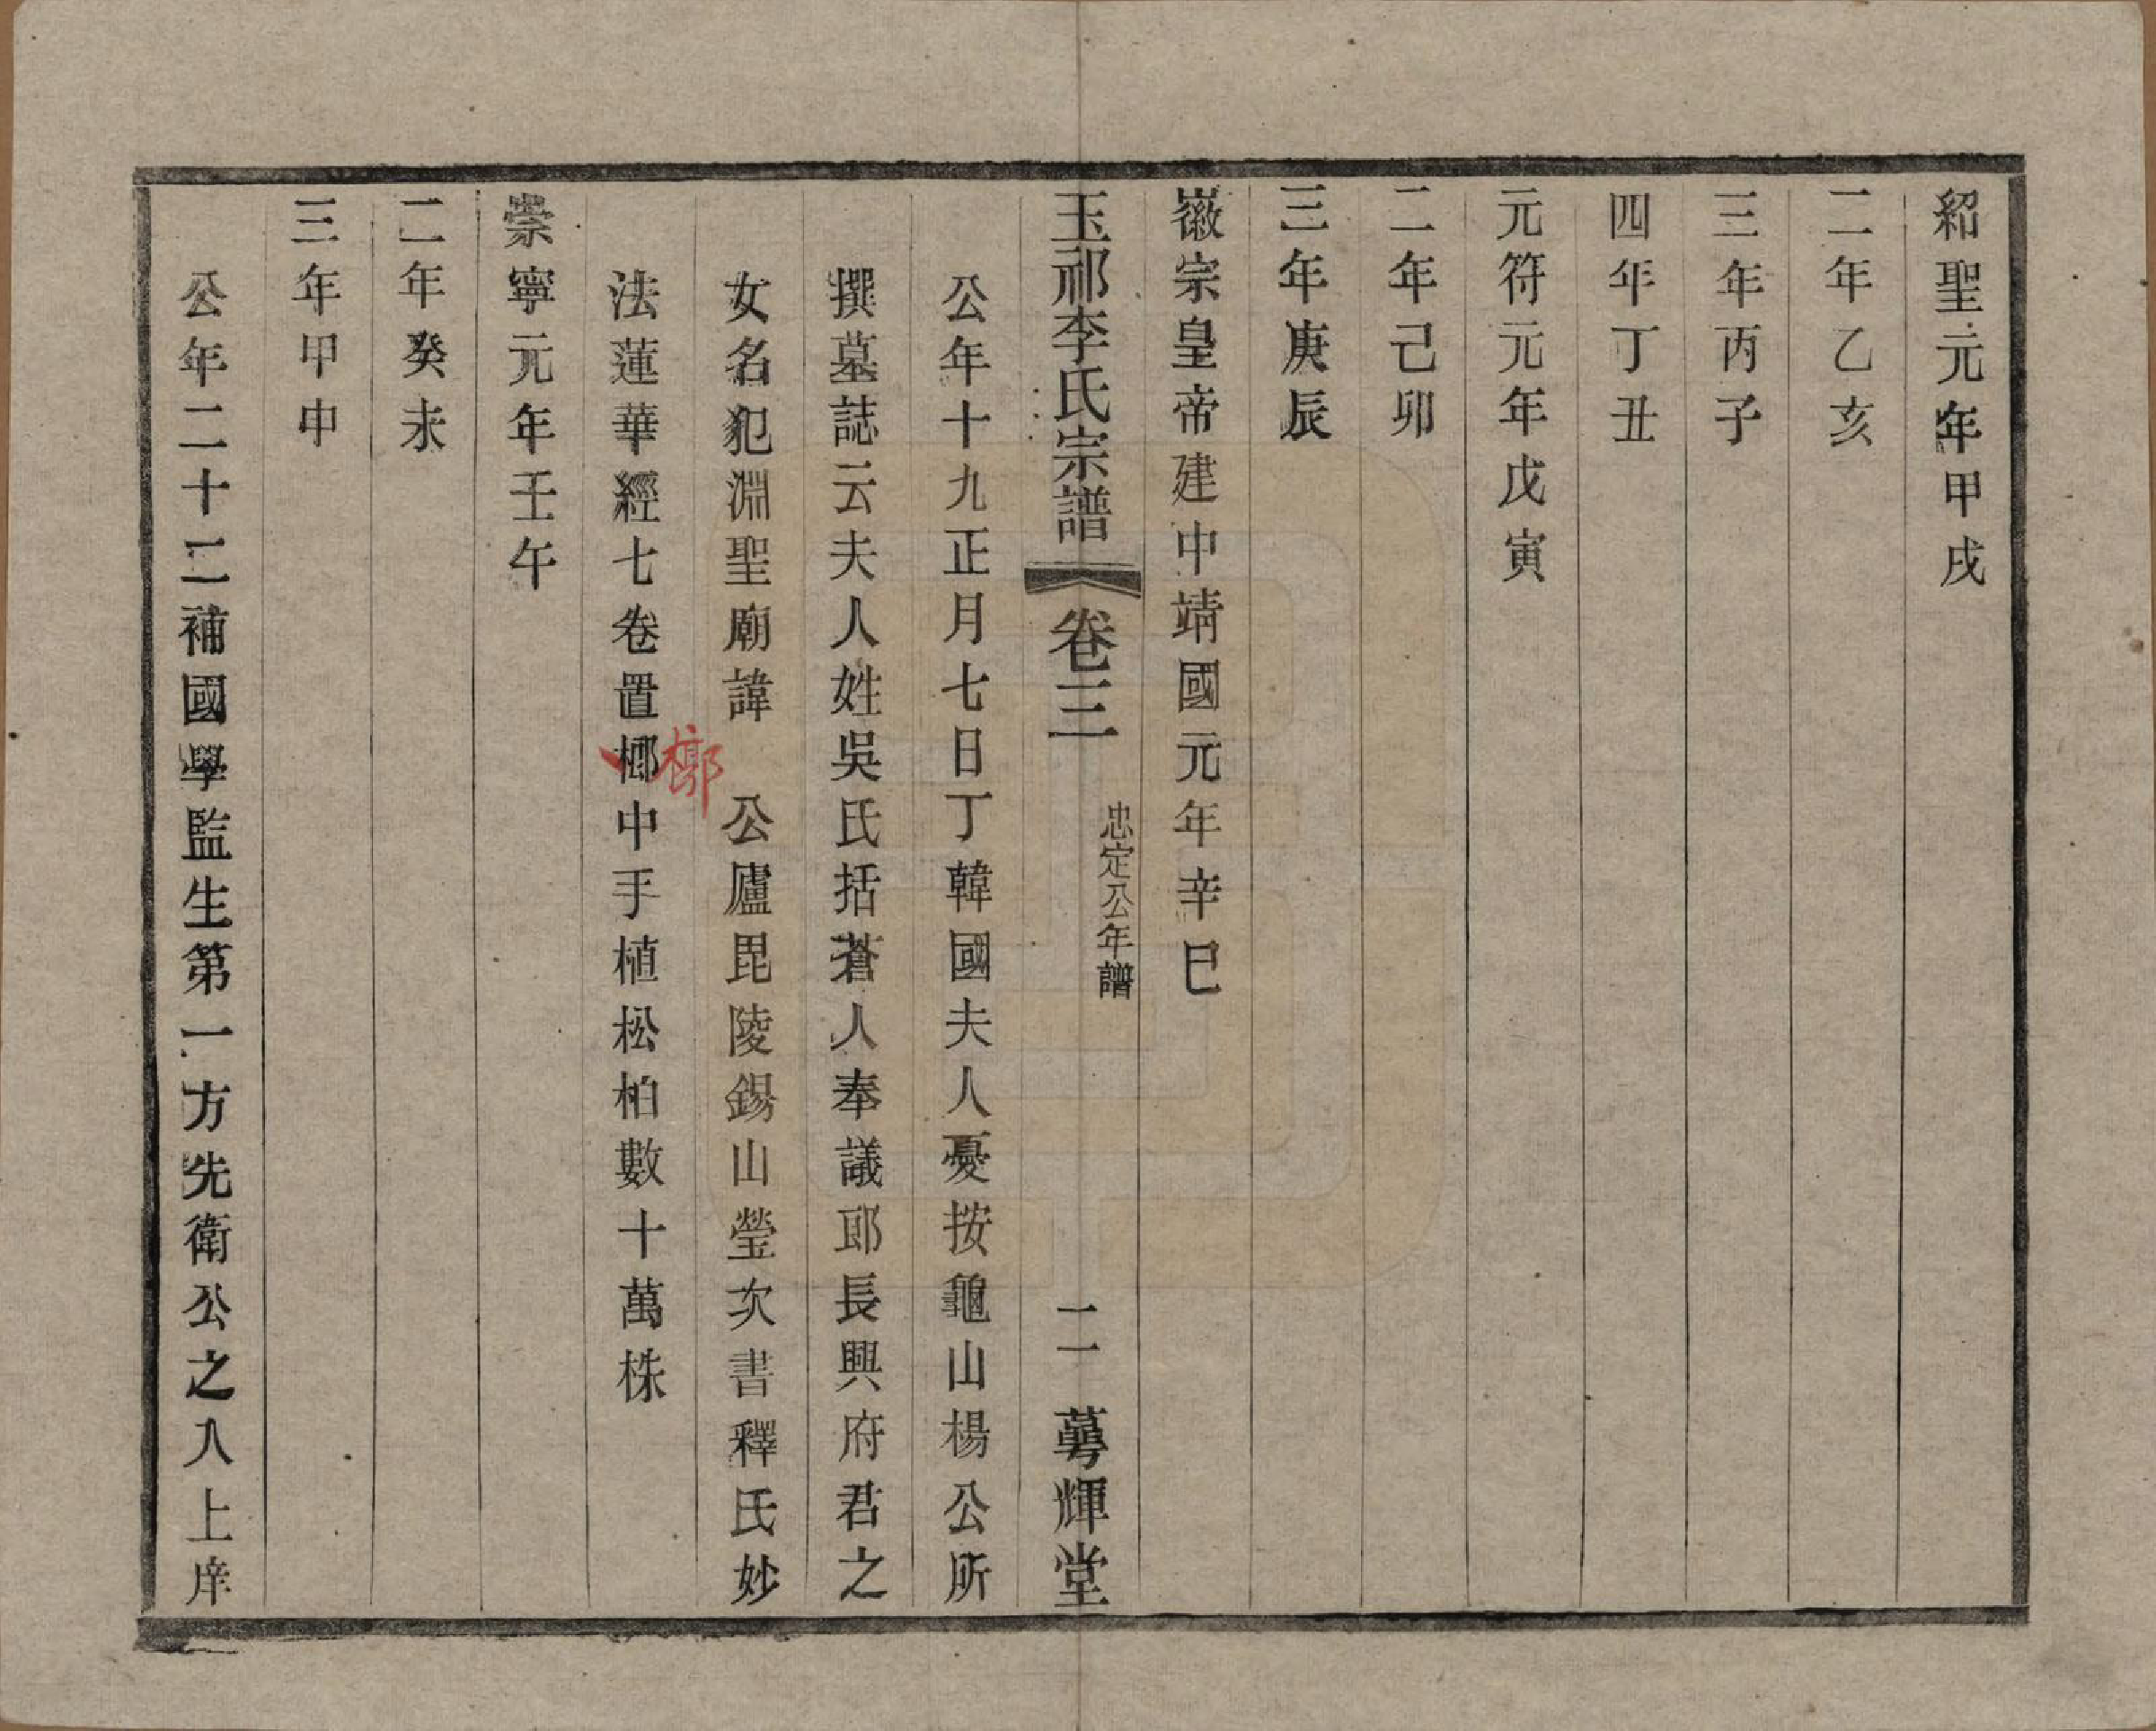 紹聖元年甲戌
二年乙亥
三年丙子
四年丁丑
元符元年戊寅
二年己卯
三年庚辰
徽宗皇帝建中靖國元年辛巳
玉祁李氏宗譜 卷三 忠定公年譜 二 萼輝堂
公年十九正月七日丁韓國夫人憂按龜山楊公所
撰墓誌云夫人姓吳氏括蒼人奉議郎長興府君之
女名犯淵聖廟諱 公廬毘陵錫山瑩次書釋氏妙
法蓮華經七卷置槨中手植松柏數十萬株
槨
崇寧元年壬午
二年癸未
三年甲申
公年二十二補國學監生第一方先衛公之入上庠